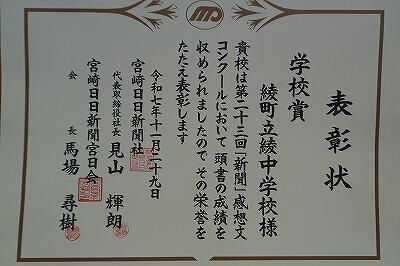 表彰状
学校賞
綾町立綾中学校様
貴校は第二十三回「新聞」感想文
コンクールにおいて頭書の成績を
収められましたので その栄誉を
たたえ表彰します
令和七年十一月二十九日
宮崎日日新聞社
代表取締役社長 見山輝朗
宮崎日日新聞宮日会
会長 馬場尋樹